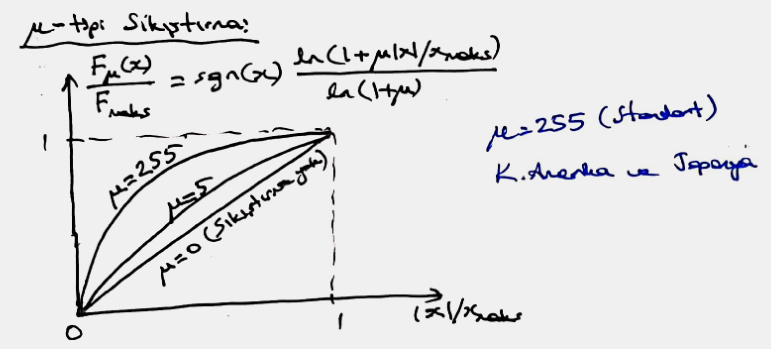 μ-tipi Sıkıştırma:
F_μ(x)/F_maks = sgn(x) ln(1+μ|x|/x_maks)/ln(1+μ)
1
μ=255
μ=5
μ=0 (Sıkıştırma yok)
0
1
|x|/x_maks
μ=255 (Standart)
K.Amerika ve Japonya